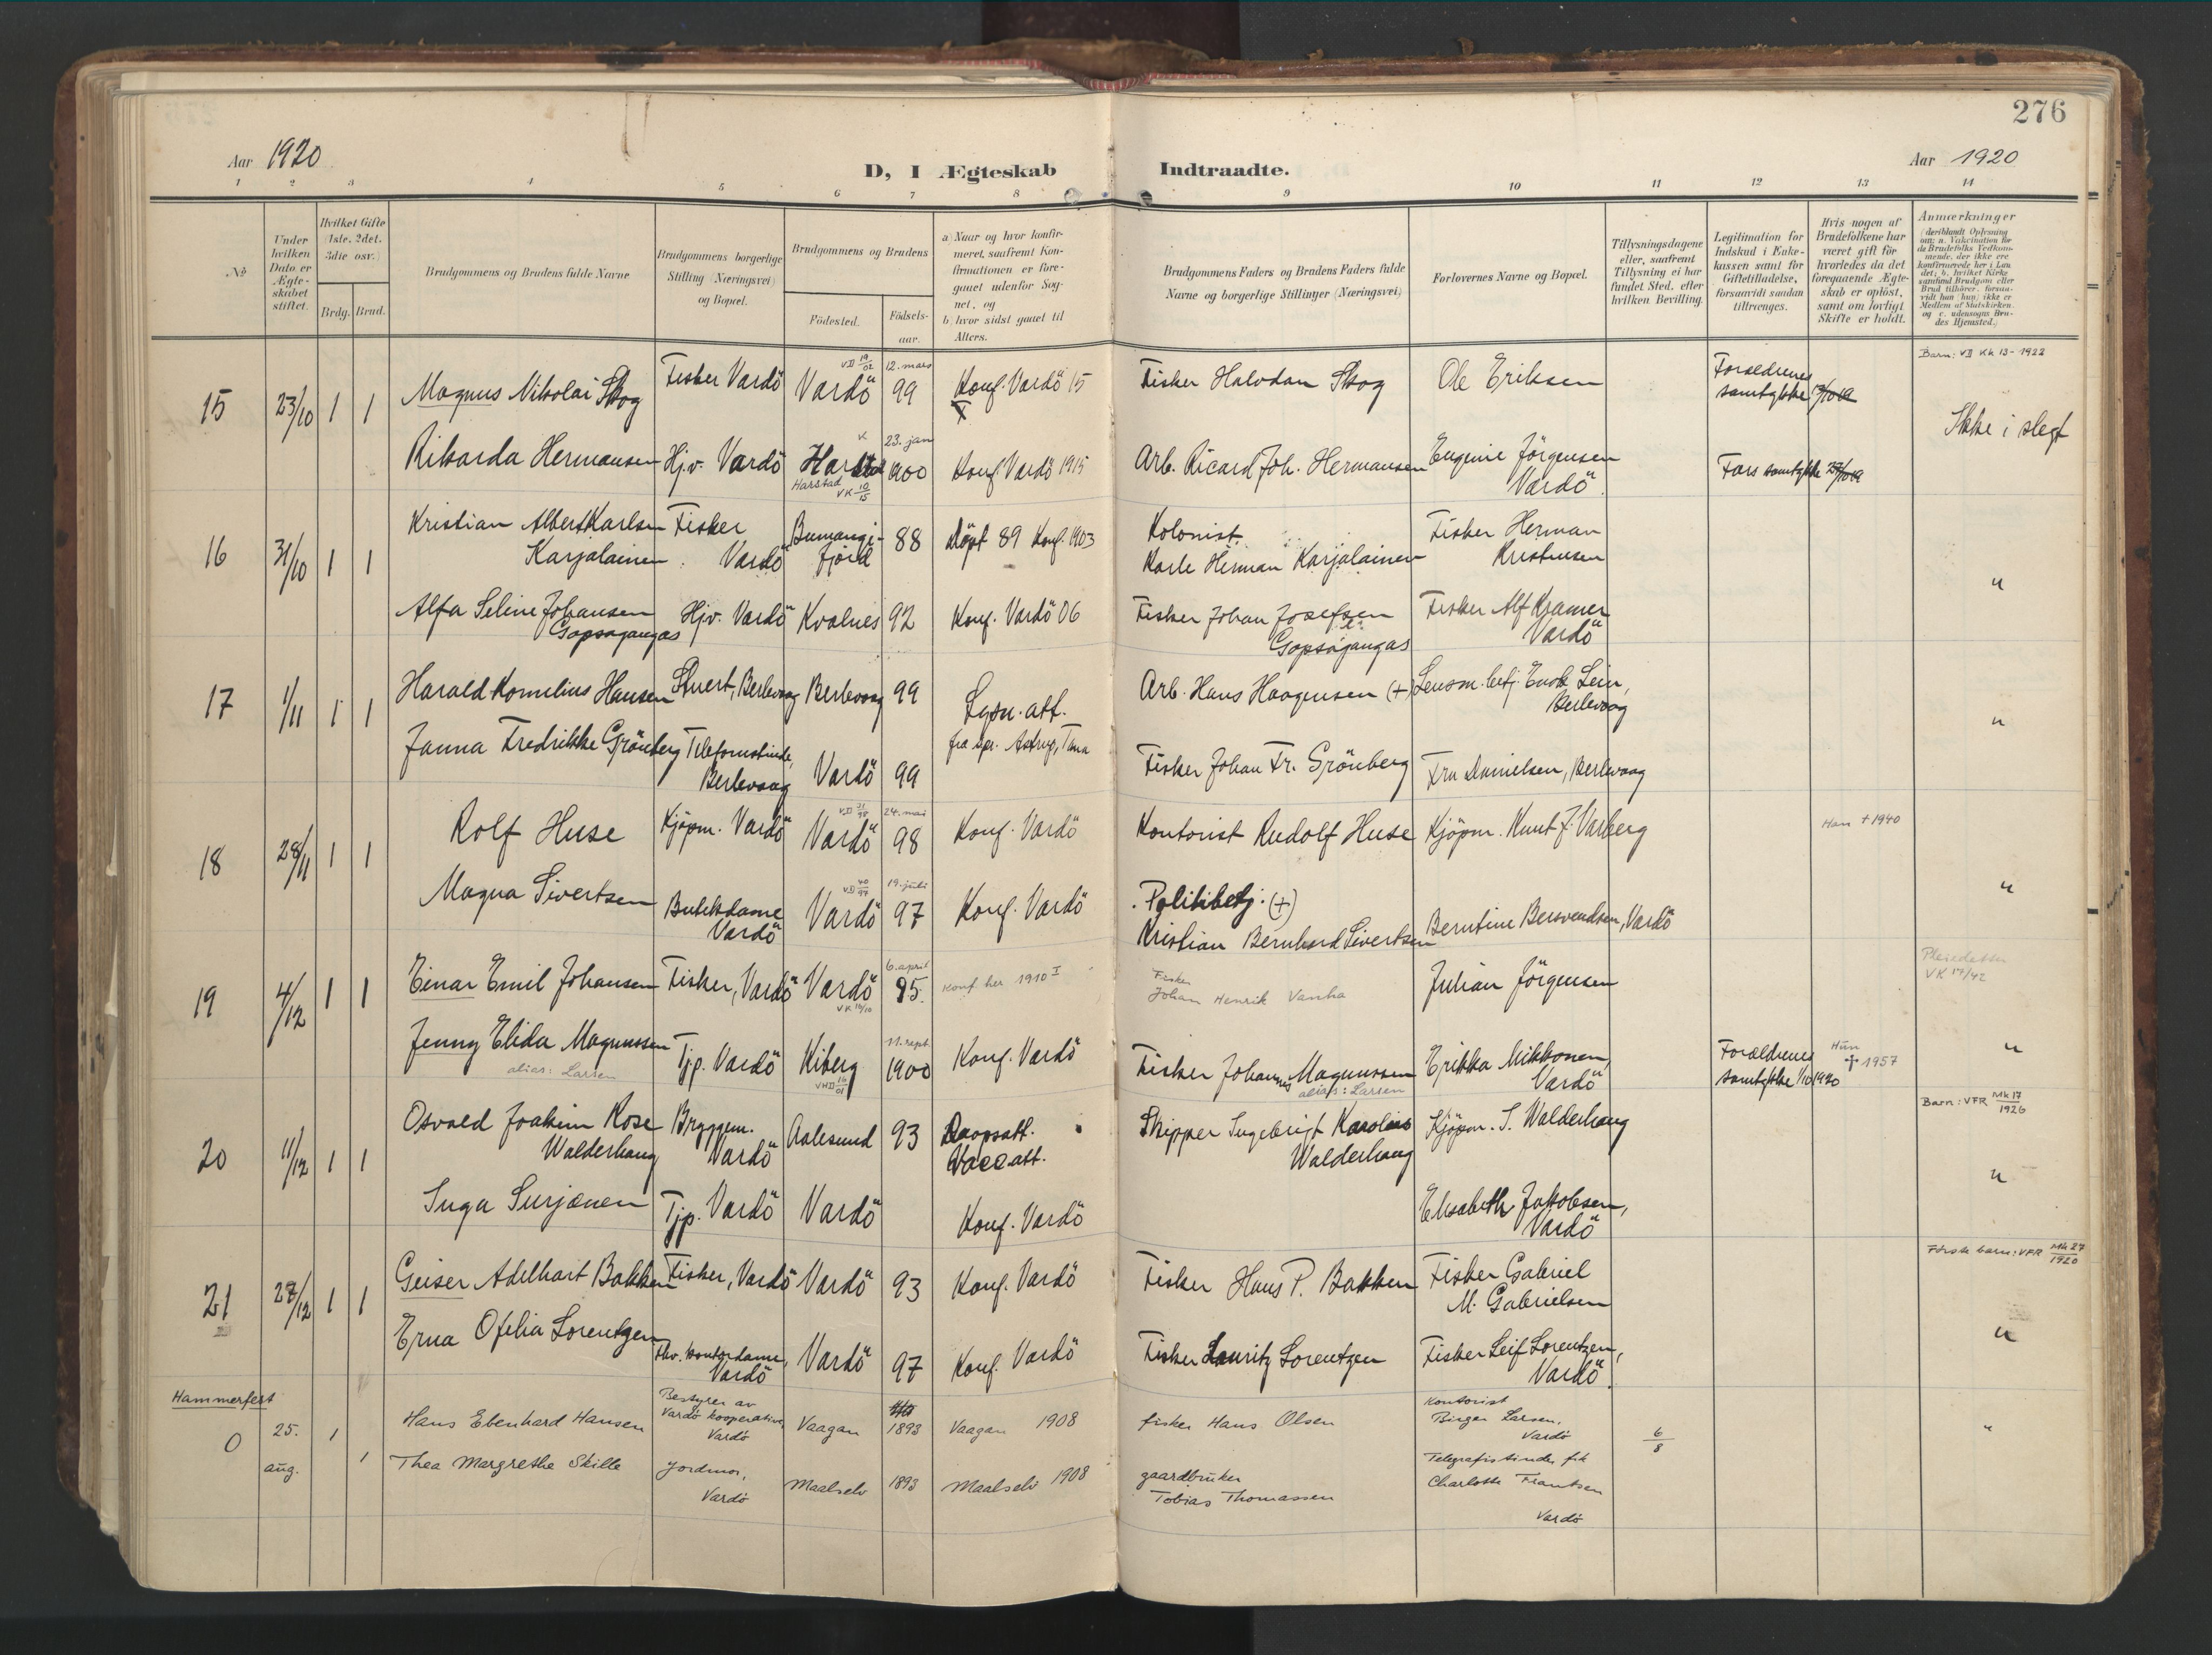 276
Aar 1920
D, I Ægteskab Indtraadte.
Aar 1920
1 2 3 4 5 6 7 8 9 10 11 12 13 14
No
Under hvilken Dato er Ægteskabet stiftet.
Hvilket Gifte (1ste, 2det, 3die osv.)
Brdg. Brud.
Brudgommens og Brudens fulde Navne
Brudgommens borgerlige Stilling (Næringsvei) og Bopæl.
Brudgommens og Brudens
Födested. Födsels-aar.
a) Naar og hvor konfirmeret, saafremt Konfirmationen er foregaaet udenfor Sognet, og
b) hvor sidst gaaet til Alters.
Brudgommens Faders og Brudens Faders fulde Navne og borgerlige Stillinger (Næringsvei)
Forlovernes Navne og Bopæl.
Tillysningsdagene eller, saafremt Tillysning ei har fundet Sted, efter hvilken Bevilling.
Legitimation for Indskud i Enkekassen samt for Giftetilladelse, forsaavidt saadan tiltrænges.
Hvis nogen af Brudefolkene har været gift för hvorledes da det foregaaende Ægteskab er oplöst, samt om lovligt Skifte er holdt.
Anmærkninger
(deriblandt Oplysning om: a. Vakcination for de Brudefolks Vedkommende, der ikke ere konfirmerede her i Landet; b. hvilket Kirkesamfund Brudgom eller Brud tilhörer, forsaavidt han (hun) ikke er Medlem af Statskirken, og c. udensogns Brudes Hjemsted.)
15 23/10 1 1 Magnus Nikolai Skog Fisker Vardö VD 19/02 Vardö 12. mars 99 Konf. Vardö 15 Fisker Halvdan Skog Ole Eriksen Forældrenes samtykke 13/10 19 Barn: VD Kk 13-1922
Ikke i slegt
Rikarda Hermansen Hjv. Vardö Harstad VK 10/15 23. jan 1900 Konf. Vardö 1915 Arb. Ricard Joh. Hermansen Eugenie Jörgensen Vardö. Fars samtykke
16 31/10 1 1 Kristian Albert Karlsen Karjalainen Fisker Vardö Bumangsfjord 88 döpt 89 Konf. 1903 Kolonist Karle Herman Karjalainen Fisker Herman Kristensen
"
Alfa Seline Johansen Gapsajangas Hjv. Vardö Kvalnes 92 Konf. Vardö 06 Fisker Johan Josefsen Gapsajangas Fisker Alf Kramer Vardö
17 1/11 1 1 Harald Kornelius Hansen Stuert, Berlevaag Berlevaag 99 Lysn. att. fra spr. Astrup, Tana Arb. Hans Haagensen (+) Lensm. betj. Enok Lein, Berlevaag
"
Janna Fredrikke Grönberg Telefonistinde, Berlevaag Vardö 99 Fisker Johan Fr. Grönberg Fru Danielsen, Berlevaag
18 28/11 1 1 Rolf Huse Kjöpm. Vardö VD 21/98 Vardö 24. mai 98 Konf. Vardö Kontorist Rudolf Huse Kjöpm. Knut J. Varberg Han + 1940
"
Magna Sivertsen Butikdame Vardö VD 40/97 Vardö 19. juli 97 Konf. Vardö Politibetj. (+) Kristian Bernhard Sivertsen Berntine Bersvendsen, Vardö
19 4/12 1 1 Einar Emil Johansen Fisker, Vardö Vardö VK 14/10 6. april 95. Konf her 1910 I Fisker Johan Henrik Vanha Julian Jörgensen VK 17/42
"
Jenny Elida Magnussen alias: Larsen Tjp. Vardö Kiberg 11. sept 1900 Konf. Vardö Fisker Johannes Magnussen alias: Larsen Erikka Mikkonen Vardö Forældrenes samtykke 1/10 1920 Hun + 1957
20 11/12 1 1 Osvald Joakim Rose Walderhaug Bryggem. Vardö Aalesund 93 Daapsatt. Vacc. att. Skipper Ingebrigt Karolius Walderhaug Kjöpm. S. Walderhaug Barn: VFR Mk 17/1926
"
Inga Surjonen Tjp. Vardö Vardö Konf. Vardö Elisabeth Jakobsen, Vardö
21 27/12 1 1 Geiser Adelhart Bakken Fisker, Vardö Vardö 93 Konf. Vardö Fisker Hans P. Bakken Fisker Gabriel M. Gabrielsen Förste barn: VFR Mk 27/1920
"
Erna Ofelia Lorentzen kontordame, Vardö Vardö 97 Konf. Vardö Fisker Lauritz Lorentzen Fisker Leif Lorentzen, Vardö.
Hammerfest
0 25. aug. 1 Hans Ebenhard Hansen Bestyrer av Vardö kooperative, Vardö Vaagan 1893 Vaagan 1908 fisker Hans Olsen Kontorist Birger Larsen, Vardö 6/8 "
1 Thea Margrethe Skille Jordmor, Vardö Maalselv 1893 Maalselv 1908 gaardbruker Tobias Thomassen Telegrafistinde, frk Charlotte Frantsen Vardö